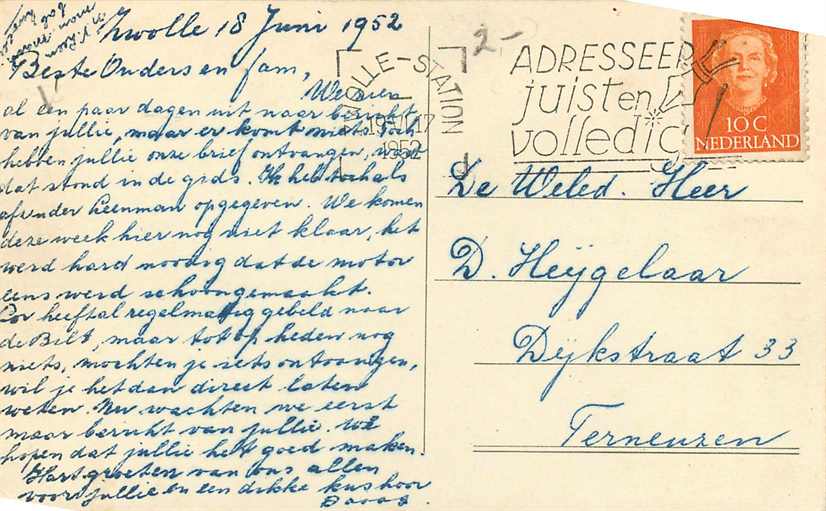 Zwolle 18 Juni 1952
Beste Ouders en fam,
We zien
al een paar dagen uit naar bericht
van jullie, maar er komt niets. Toch
hebben jullie onze brief ontvangen, want
dat stond in de gids. Ik heb toch als
afzender Leenman opgegeven. We komen
deze week hier nog niet klaar, het
werd hard noodig dat de motor
eens werd schoongemaakt.
Cor heeft al regelmatig gebeld naar
de Bilt, maar tot op heden nog
niets, mochten je iets ontvangen,
wil je het dan direct laten
weten. Nu wachten we eerst
maar bericht van jullie. We
hopen dat jullie het goed maken.
Hart groeten van ons allen
voor jullie en een dikke kus hoor
2-
ZWOLLE-STATION
1952
ADRESSEER
juist en
volledig
10 C
NEDERLAND
De Weled. Heer
D. Heijgelaar
Dijkstraat 33
Terneuzen